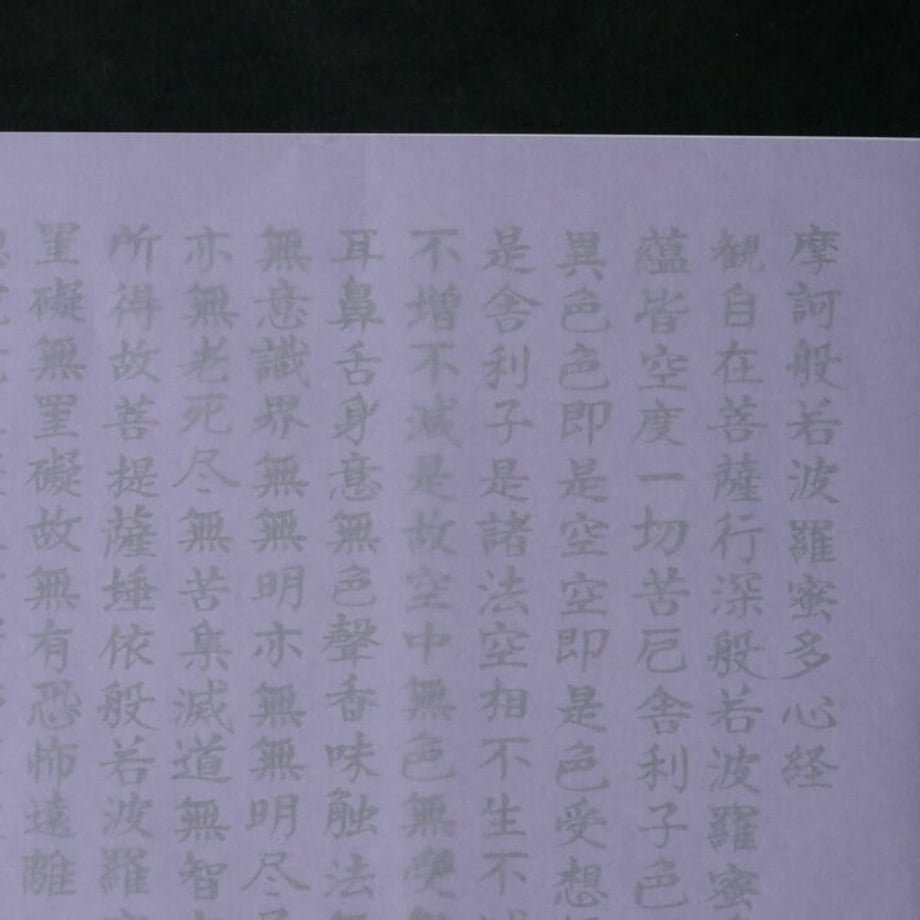 摩訶般若波羅蜜多心経
観自在菩薩行深般若波羅蜜
蘊皆空度一切苦厄舎利子色
異色色即是空空即是色受想
是舎利子是諸法空相不生不
不増不減是故空中無色無受
耳鼻舌身意無色聲香味触法
無意識界無無明亦無無明尽
亦無老死尽無苦集滅道無智
所得故菩提薩埵依般若波羅
罣礙無罣礙故無有恐怖遠離